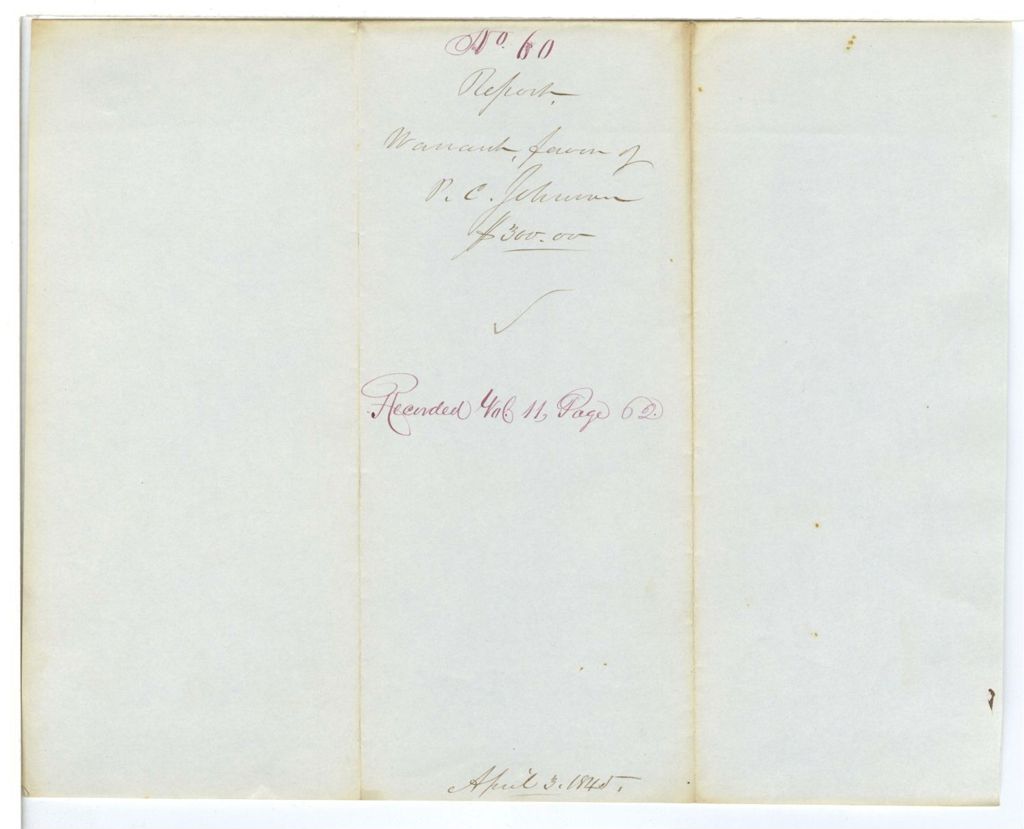 No. 60
Report.
Warrant, favor of
P. C. Johnson
$300.00
Recorded Vol. 11, Page 62.
April 3. 1845.